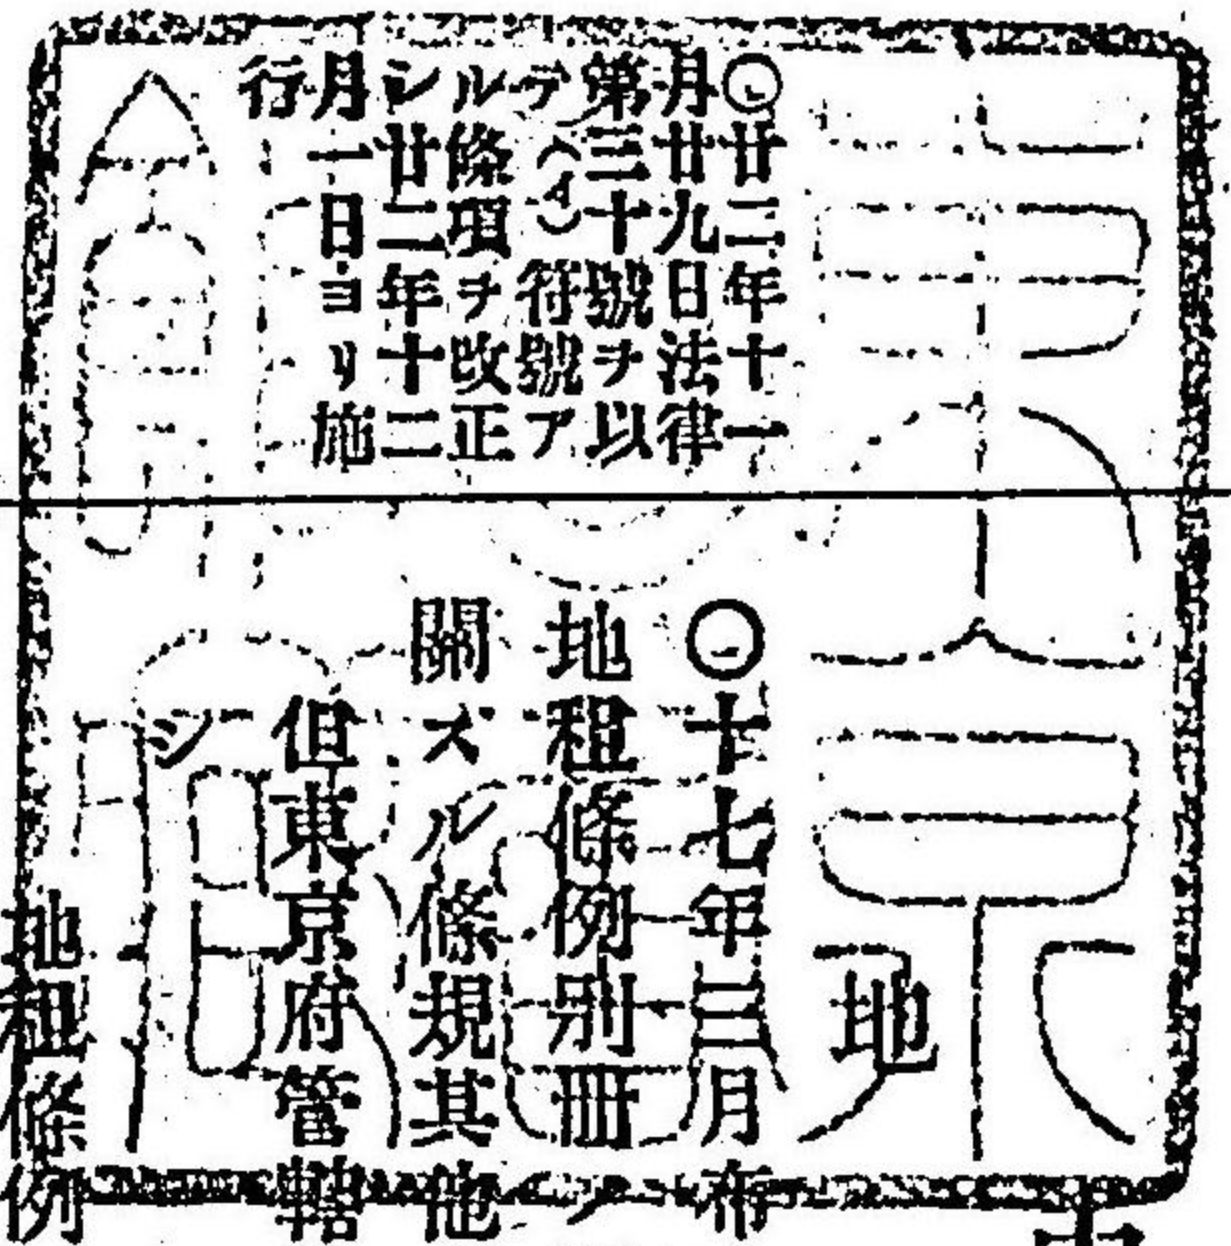 ○廿二年十一
月廿九日法律
第三十號ヲ以
テ(イ)符號ア
ル條項ヲ改正
シ廿二年十二
月一日ヨリ施
行
地
○十七年三月布
地租條例別冊ノ
關スル條規其他
但東京府管轄
シ
地租條例